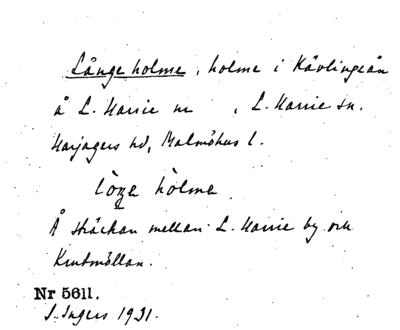 Långe holme, holme i Kävlingeån
å L. Harrie nr , L. Harrie sn.
Harjagers hd, Malmöhus l.
holme
Å sträckan mellan L. Harrie by och
Krutmöllan.
Nr 5611.
I. Ingers 1931.